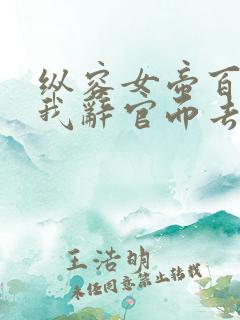 纵容女帝百
我辞官而去
王浩明
未经同意禁止转载